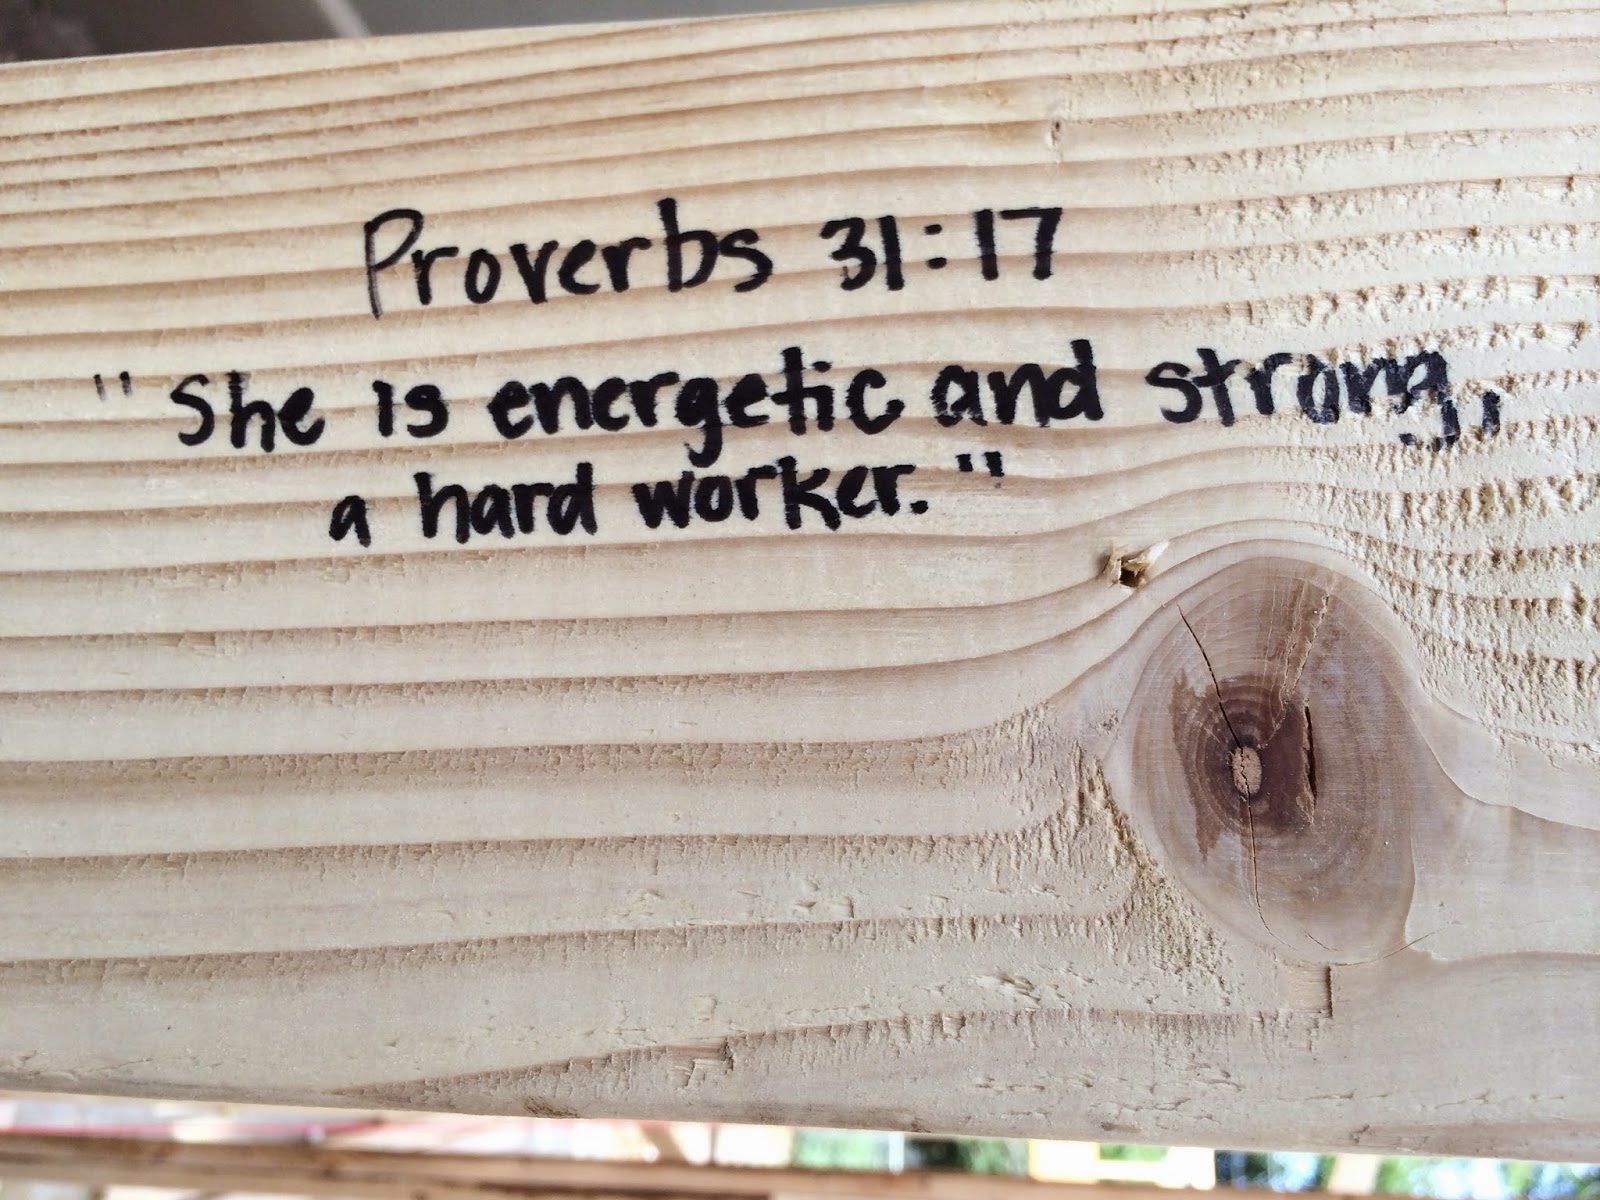 Proverbs 31:17
"She is energetic and strong,
a hard worker."